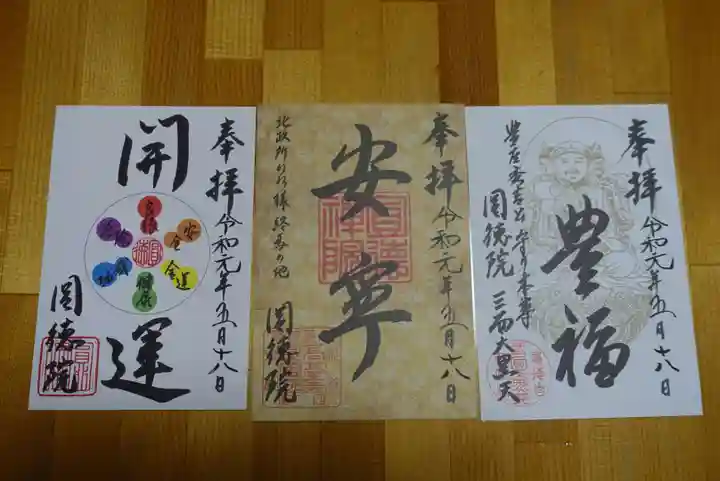 奉拝
令和元年五月十八日
開運
良縁
安全
金運
健康
圓徳院
奉拝
令和元年五月十八日
安寧
北政所ねね様終焉の地
圓徳院
奉拝
令和元年五月十八日
豊福
豊臣秀吉公守り本尊
三面大黒天
圓徳院